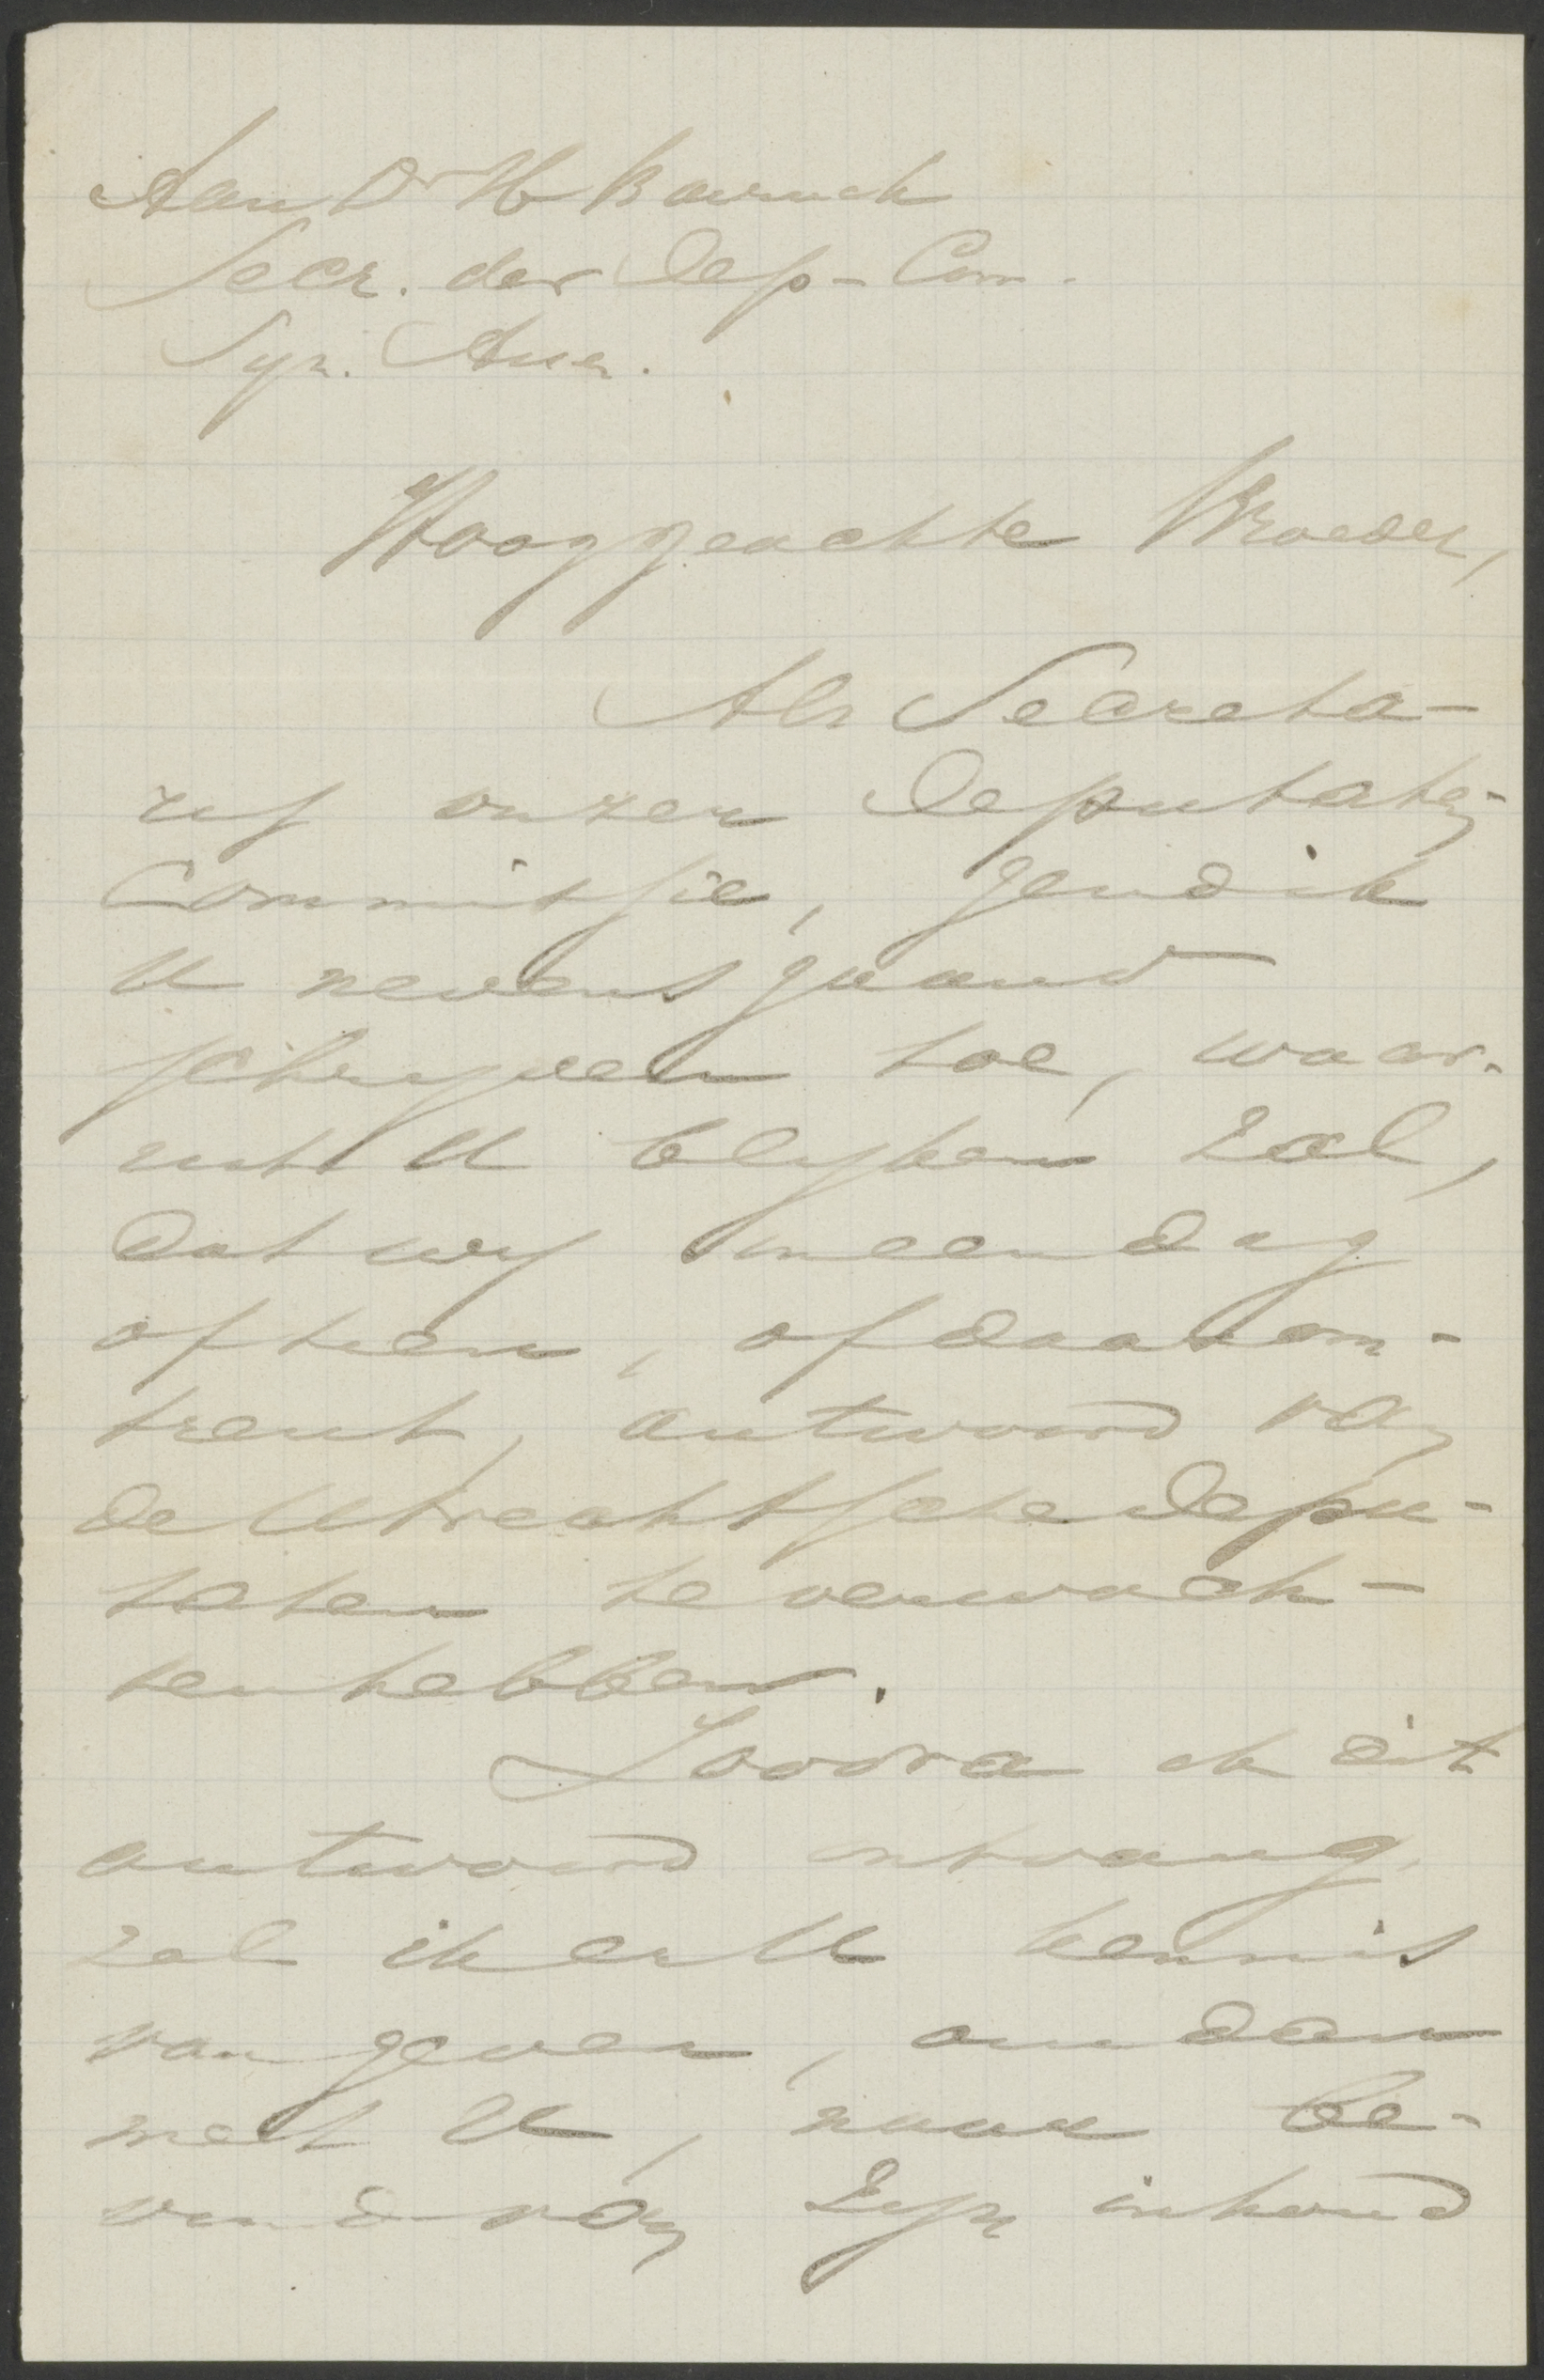 Aan Dr H Bavinck
Secr. der Dep-Com.
Syn. Am.
Hooggeachte Broeder,
Als Secreta-
ris onzer Deputaten
Commissie, zend ik
U nevensgaand
schrijven toe, waar-
uit U blijken zal,
dat wij in een dag
of tien, of daarom-
trent, antwoord van
de Utrechtsche Depu-
taten te verwach-
ten hebben.
Zoodra ik dit
antwoord ontvang,
zal ik er U kennis
van geven, om dan
met U, naar be-
vind van zijn inhoud